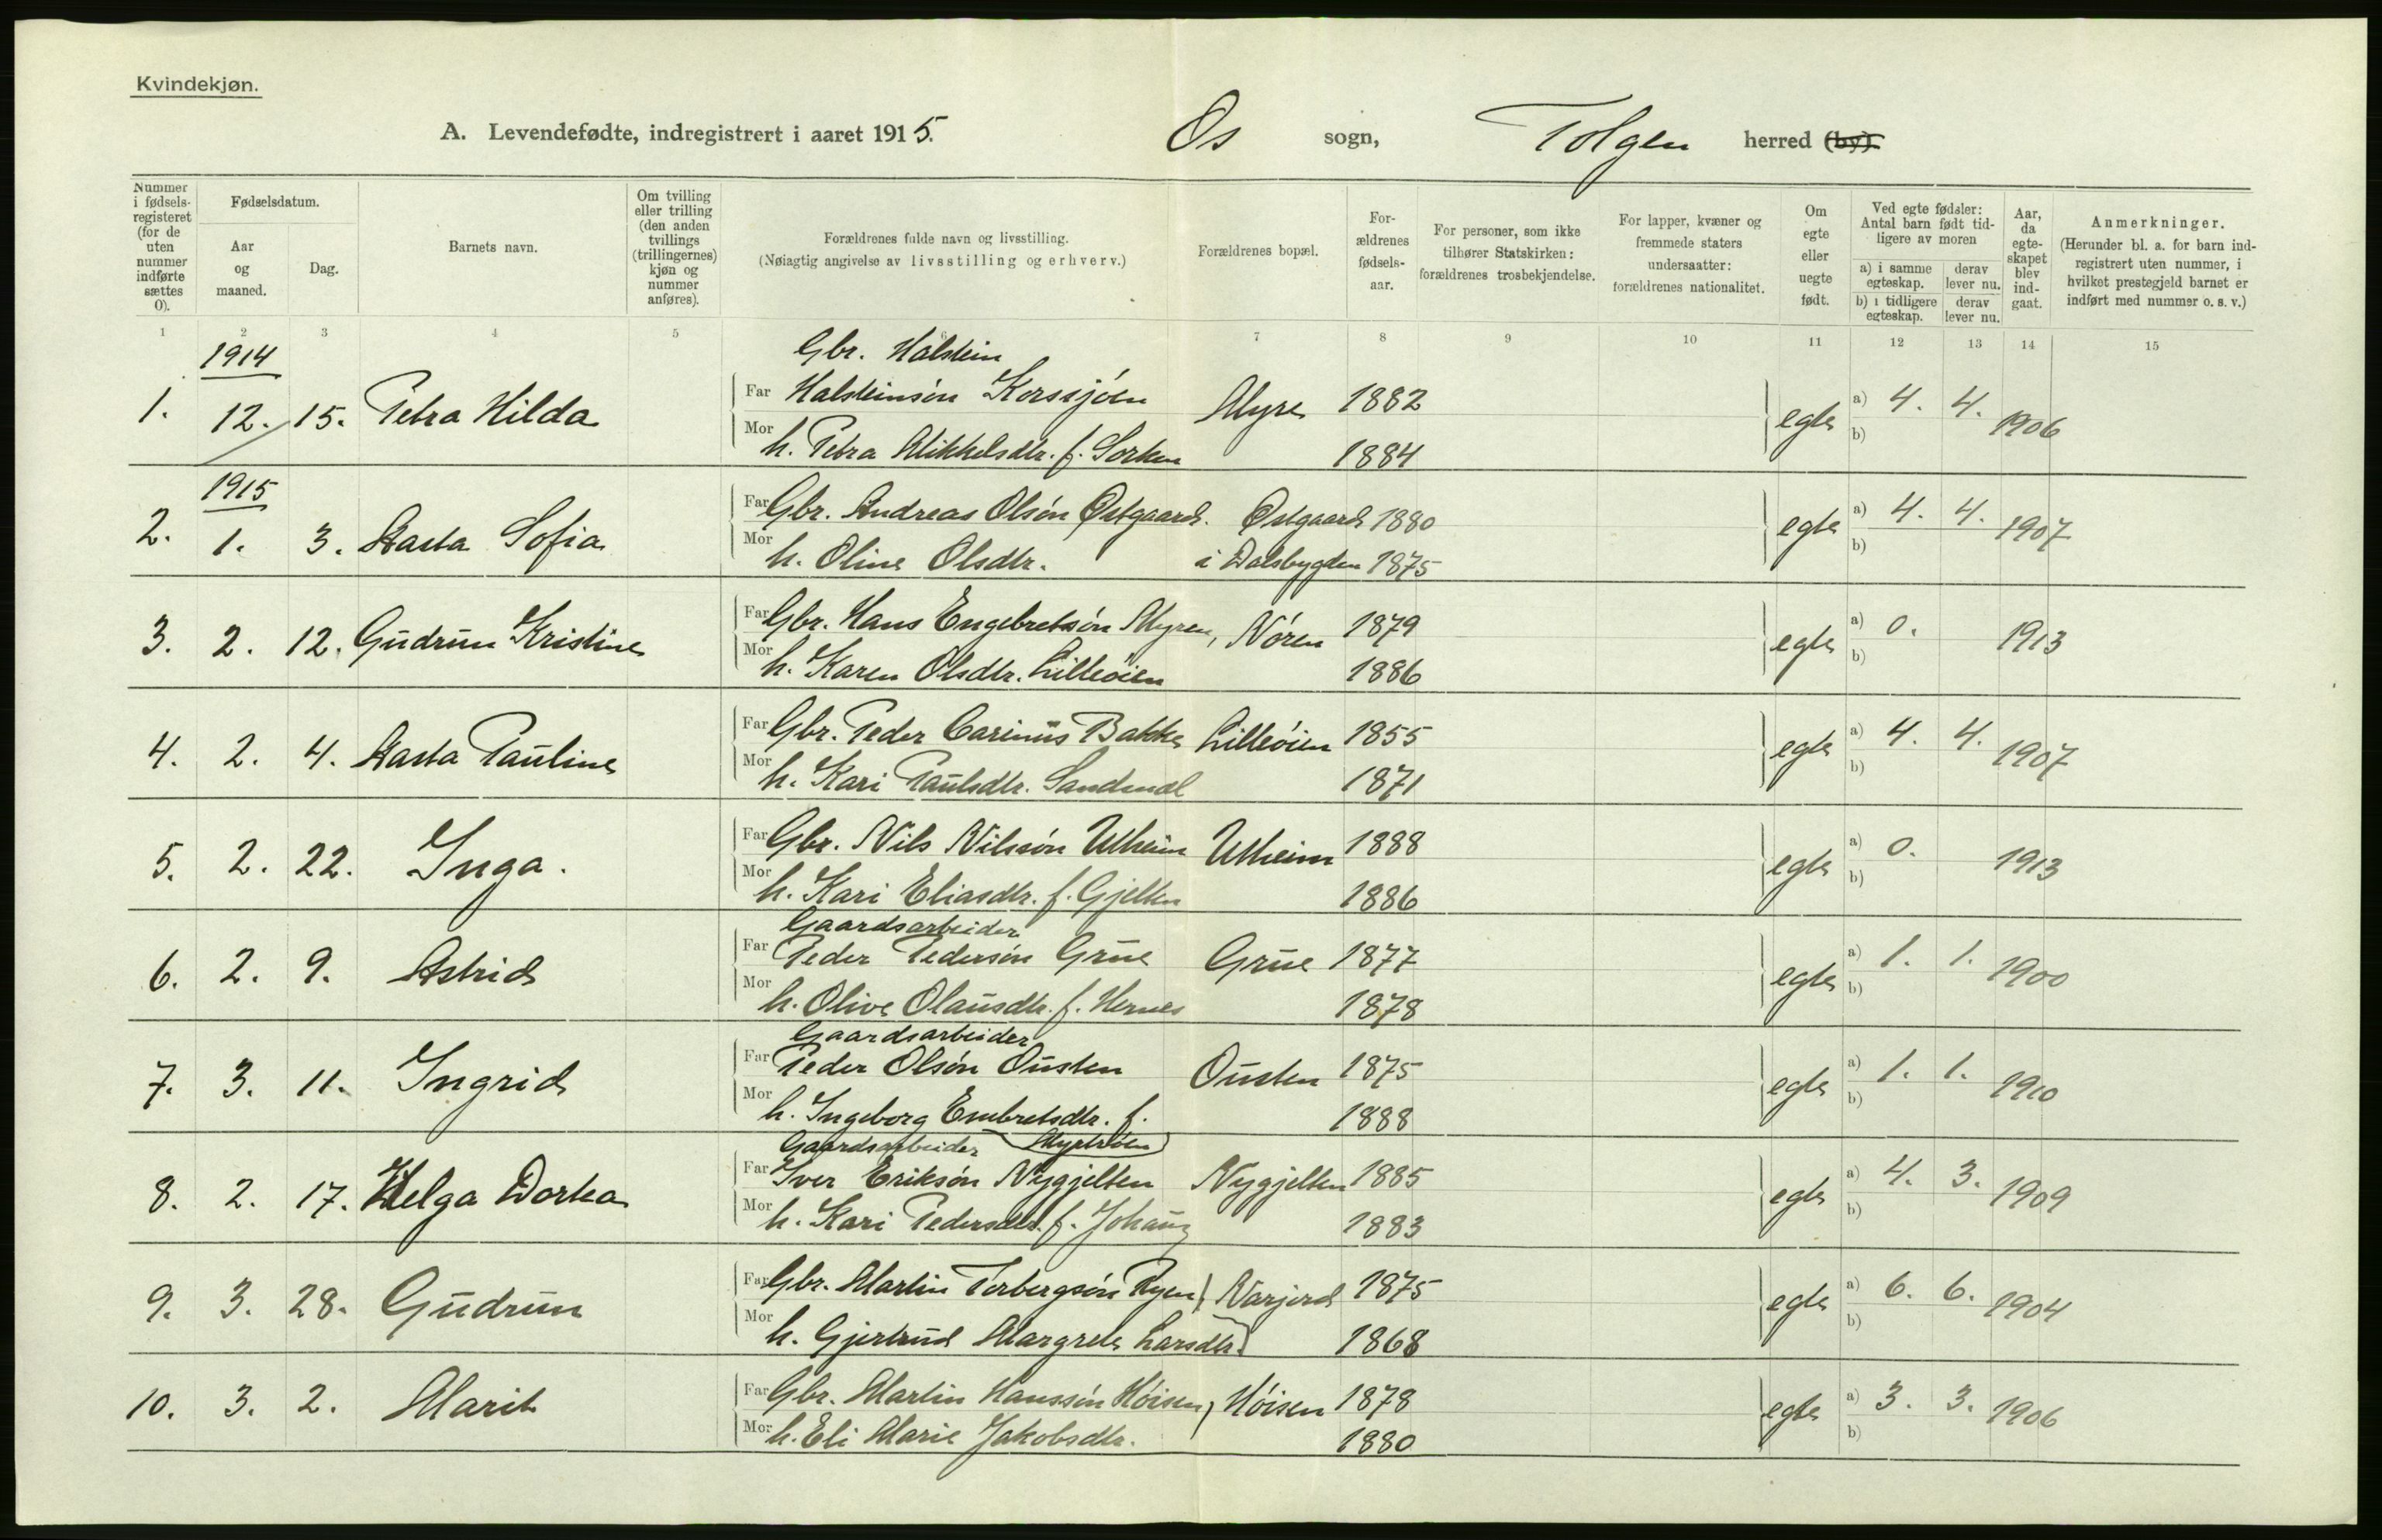 Kvindekjøn.
A. Levendefødte, indregistrert i aaret 1915. Os sogn, Tolgen herred (by).
Nummer i fødselsregisteret (for de uten nummer indførte sættes 0).
Fødselsdatum.
Aar og maaned.
Dag.
Barnets navn.
Om tvilling eller trilling (den anden tvillings (trillingernes) kjøn og nummer anføres).
Forældrenes fulde navn og livsstilling.
(Nøiagtig angivelse av livsstilling og erhverv.)
Forældrenes bopæl.
Forældrenes fødselsaar.
For personer, som ikke tilhører Statskirken: forældrenes trosbekjendelse.
For lapper, kvæner og fremmede staters undersaatter: forældrenes nationalitet.
Om egte eller uegte født.
Ved egte fødsler: Antal barn født tidligere av moren
a) i samme egteskap. derav lever nu.
b) i tidligere egteskap. derav lever nu.
Aar, da egteskapet blev indgaat.
Anmerkninger.
(Herunder bl. a. for barn indregistrert uten nummer, i hvilket prestegjeld barnet er indført med nummer o. s. v.)
1 2 3 4 5 6 7 8 9 10 11 12 13 14 15
1914
Gbr. Halstein
1. 12. 15. Petra Hilda Far Halsteinsøn Korssjøen Myre 1882 egte a) 4. 4. 1906
Mor h. Petra Mikkelsdtr. f. Sorken 1884 b)
1915
2. 1. 3. Aasta Sofia Far Gbr. Andreas Olsøn Østgaard. Østgaard 1880 egte a) 4. 4. 1907
Mor h. Oline Olsdtr. i Dalsbygden 1875 b)
3. 2. 12. Gudrun Kristine Far Gbr. Hans Engebretsøn Myren, Nøren 1879 egte a) 0. 1913
Mor h. Karen Olsdtr. Lilleøien 1886 b)
4. 2. 4. Aasta Pauline Far Gbr. Peder Carinus Bakke Lilleøien 1855 egte a) 4. 4. 1907
Mor h. Kari Paulsdtr. Sandmæl 1871 b)
5. 2. 22. Inga. Far Gbr. Nils Nilssøn Utheim Utheim 1888 egte a) 0. 1913
Mor h. Kari Eliasdtr. f. Gjelten 1886 b)
Gaardsarbeider
6. 2. 9. Astrid Far Peder Pedersøn Grue Grue 1877 egte a) 1. 1. 1900
Mor h. Olive Olausdtr. f. Hernes 1878 b)
Gaardsarbeider
7. 3. 11. Ingrid Far Peder Olsøn Ousten Ousten 1875 egte a) 1. 1. 1910
Mor h. Ingeborg Embretsdtr. f. 1888 b)
Gaardsarbeider
8. 2. 17. Helga Dortea Far Iver Eriksøn Nygjelten Nygjelten 1885 egte a) 4. 3. 1909
Mor h. Kari Pedersdtr. f. Johaug 1883 b)
9. 3. 28. Gudrun Far Gbr. Martin Torbergsøn Ryen, Narjord 1875 egte a) 6. 6. 1904
Mor h. Gjertrud Margrete Larsdtr. 1868 b)
10. 3. 2. Marit Far Gbr. Martin Hanssøn Høisen, Høisen 1878 egte a) 3. 3. 1906
Mor h. Eli Marie Jakobsdtr. 1880 b)